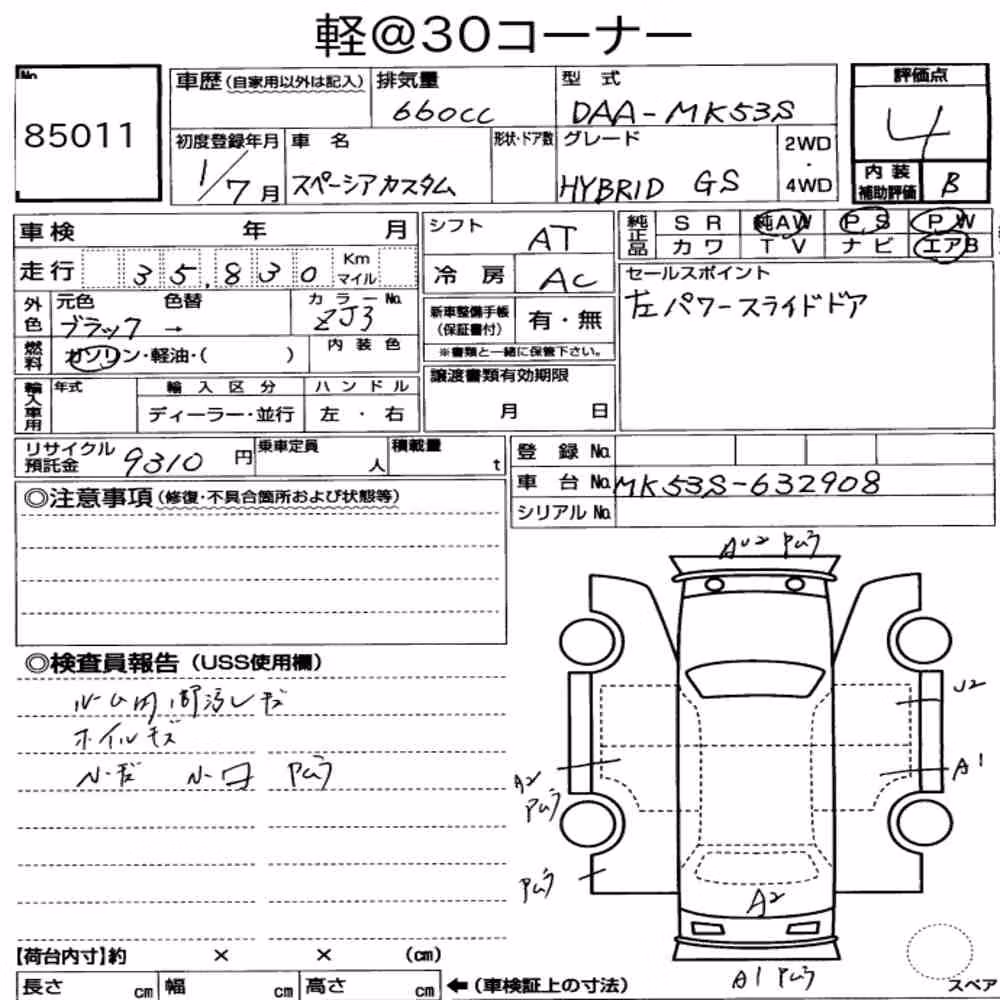 軽@30コーナー
No.
85011
車歴(自家用以外は記入)
排気量
660cc
型 式
DAA-MK53S
評価点
4
初度登録年月
1/7月
車 名
スペーシアカスタム
形状・ドア数
グレード
HYBRID GS
2WD
・
4WD
内 装
補助評価
B
車検 年 月
走行 35,830 Km
マイル
外色
元色 色替
ブラック →
カラーNo.
ZJ3
燃料
ガソリン・軽油・( )
内 装 色
輸入車用
年式
輸 入 区 分
ディーラー・並行
ハ ン ド ル
左 ・ 右
シフト AT
冷 房 AC
新車整備手帳
(保証書付)
有・無
※書類と一緒に保管下さい。
譲渡書類有効期限
月 日
純正品
S R 純AW P.S P W
カ ワ T V ナ ビ エアB
セールスポイント
左パワースライドドア
リサイクル
預託金
9310 円
乗車定員
人
積載量
t
登 録 No.
車 台 No. MK53S-632908
シリアル No.
◎注意事項(修復・不具合箇所および状態等)
◎検査員報告(USS使用欄)
ルーム内 汚レ キズ
ホイルキズ
ハ-キズ ハ-凹 Pムラ
AU2 Pムラ
U2
A1
A2
Pムラ
Pムラ
A2
A1 Pムラ
スペア
【荷台内寸】約 × × (cm)
長さ cm 幅 cm 高さ cm ←(車検証上の寸法)